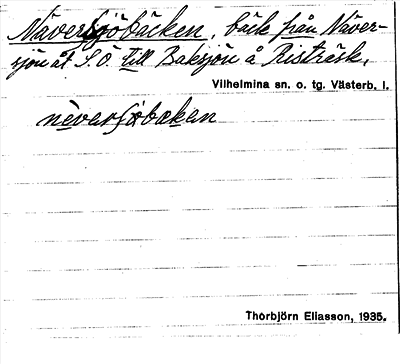 Näversjöbäcken, bäck från Näver-
sjön åt S.Ö. till Baksjön å Risträsk.
Vilhelmina sn. o. tg. Västerb. l.
nèversjöbækan
Thorbjörn Eliasson, 1935.